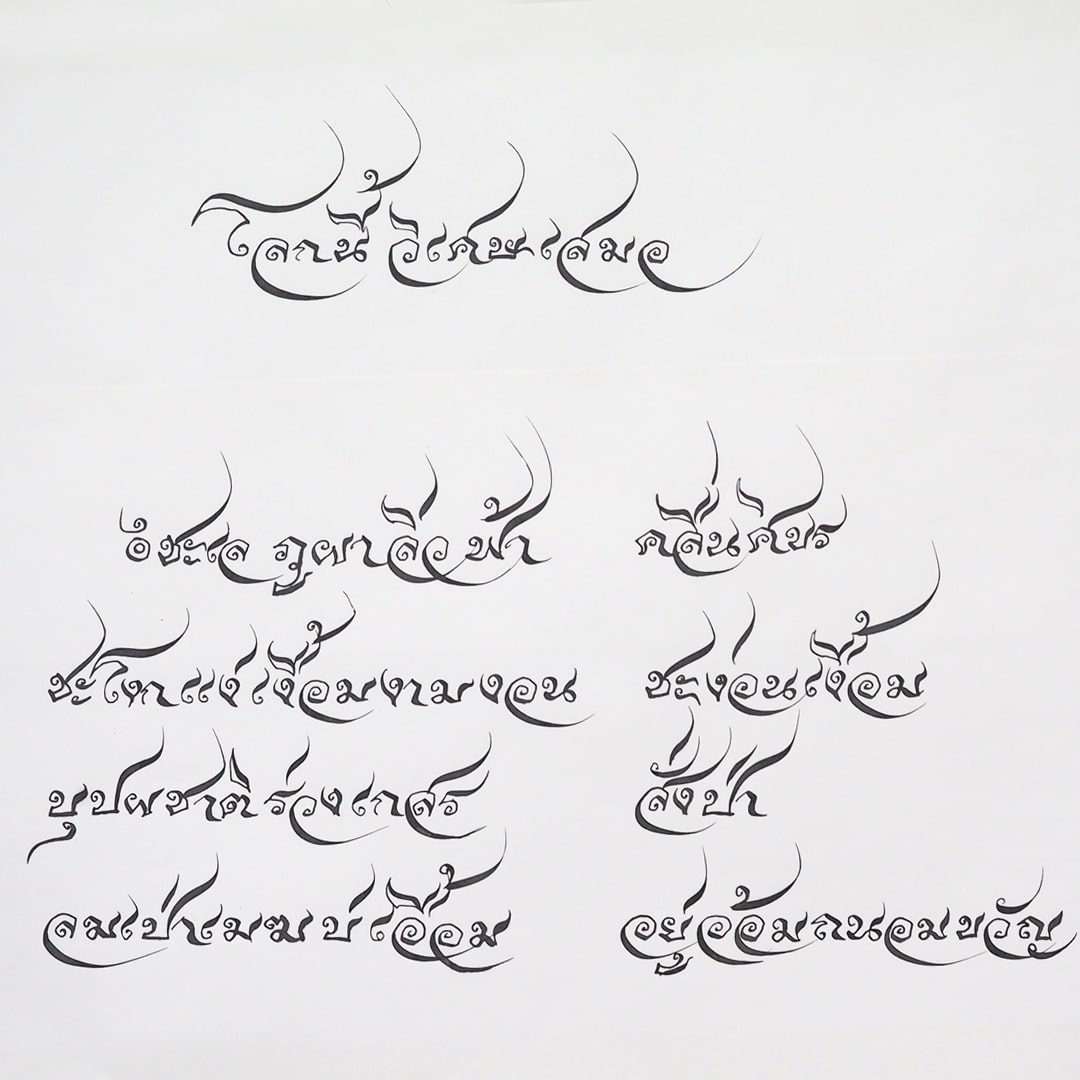 โลกนี้ วิเศษเสมอ
๏ ชะเล ภูผาลิ่ว ฟ้า คลื่นศิขร
แง่เงื้อมงามงอน ชะง่อนเงื้อม
บุปผชาติร่วงเกสร สั่งป่า
ลมเป่าเมฆ บ่ เอื้อม อยู่อ้อมถนอมขวัญ